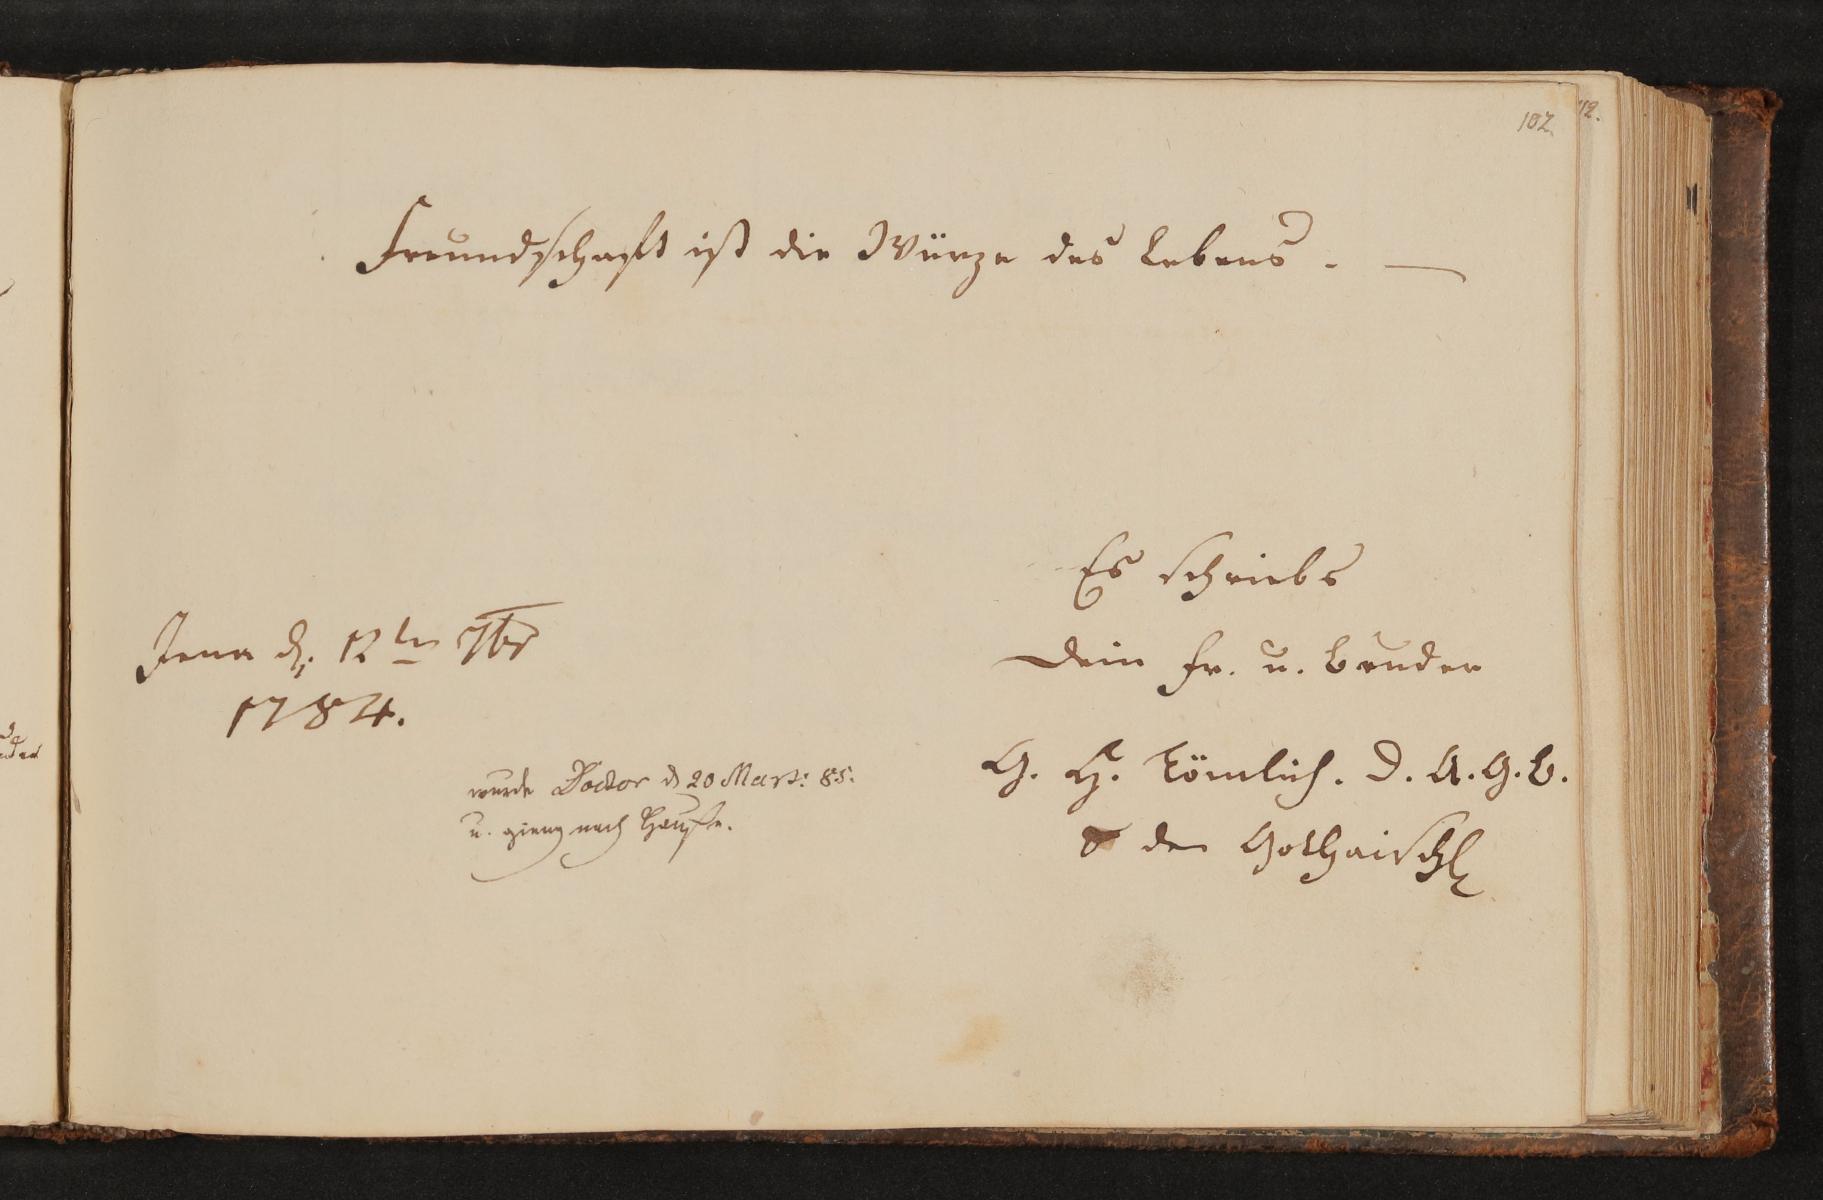 102
112.
Freundschaft ist die Würze des Lebens. —
Es schriebs
Jena d. 12ten 7br
1784.
Dein Fr. u. Bruder
G. H. Kömlich. D. A. G. B.
wurde Doctor d 20 Mart: 85.
u. gieng nach Hauße.
der Gothaisch